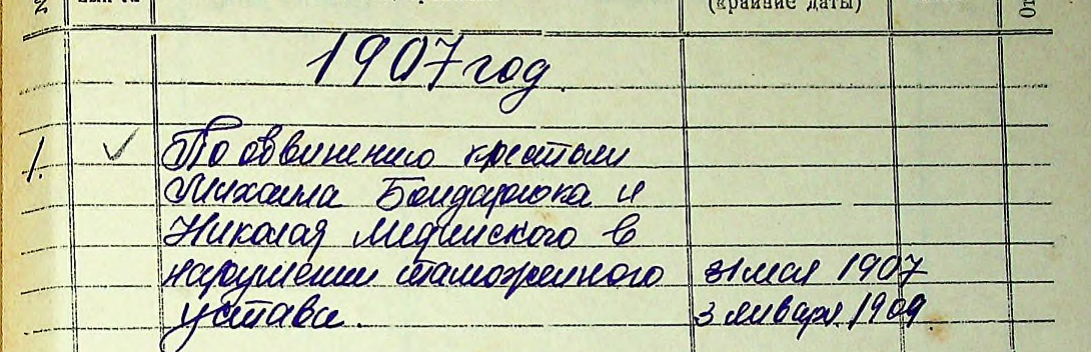 (крайние даты)
1907 год.
1. ✓ По обвинению крестьян
Михаила Бондарюка и
Николая Мединского в
нарушении таможенного 31 мая 1907
устава. 3 января 1909